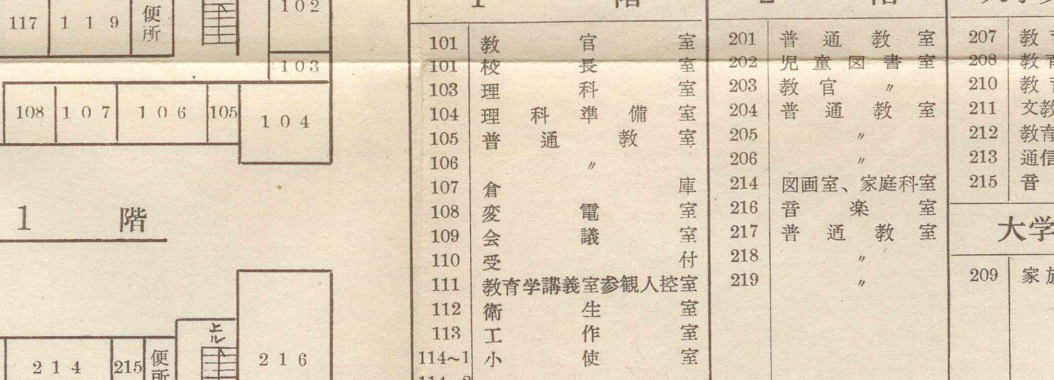 117
119
便所
102
103
108
107
106
105
104
1 階
上ル
214
215
便所
216
1 階
101 教官室
101 校長室
103 理科室
104 理科準備室
105 普通教室
106 〃
107 倉庫
108 変電室
109 会議室
110 受付
111 教育学講義室参観人控室
112 衛生室
113 工作室
114~1 小使室
201 普通教室
202 児童図書室
203 教官〃
204 普通教室
205 〃
206 〃
214 図画室、家庭科室
216 音楽室
217 普通教室
218 〃
219 〃
207 教育
208 教育
210 教育
211 文教
212 教育
213 通信
215 音
大学
209 家族